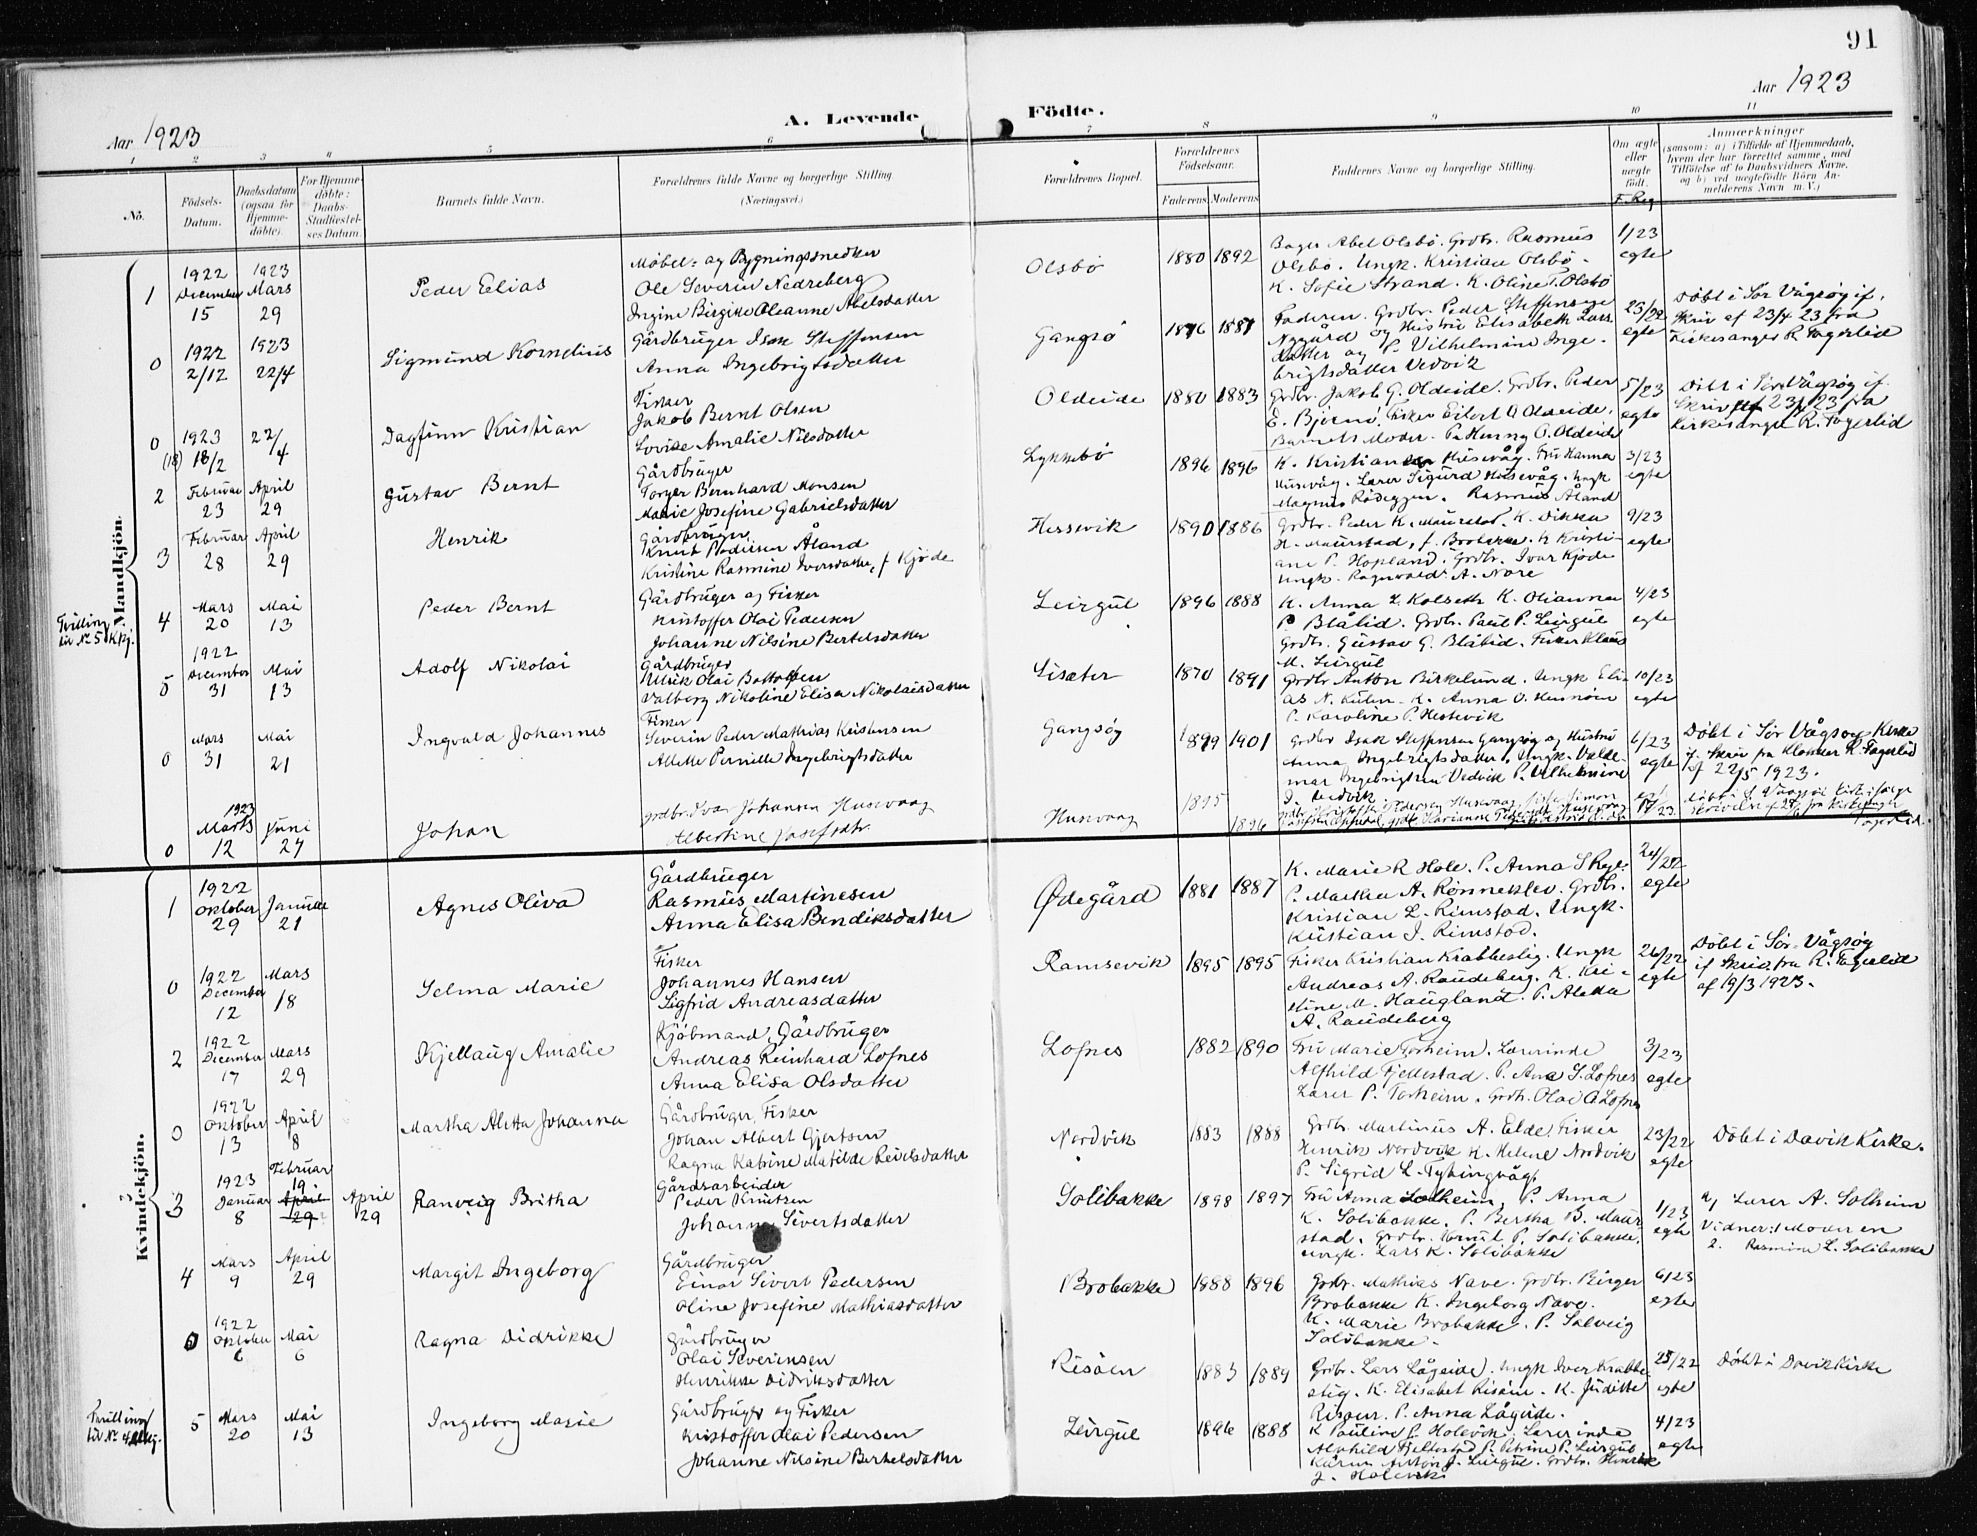 91
Aar 1923
Aar 1923
A. Levende
Födte.
1 2 3 4 5 6 7 8 9 10 11
No.
Födsels-
Datum.
Daabsdatum
(ogsaa for
Hjemme-
døbte).
For Hjemme-
döbte:
Daabs-
Stadfæstel-
ses Datum.
Barnets fulde Navn.
Forældrenes fulde Navne og borgerlige Stilling.
(Næringsvei.)
Forældrenes Bopæl.
Forældrenes
Födselsaar.
Faderens. Moderens.
Faddernes Navne og borgerlige Stilling.
Om ægte
eller
uægte
født.
F. Reg
Anmærkninger
(saasom: a) i Tilfælde af Hjemmedaab,
hvem der har forrettet samme, med
Tilföielse af to Daabsvidners Navne,
og b) ved uægtefödte Börn An-
melderens Navn m. V.)
Mandkjön.
1
1922
December
15
1923
Mars
29
Peder Elias
Møbel- og Bygningssnedker
Ole Severin Nedreberg
Ingine Birgitte Oleanne Abelsdatter
Olsbö
1880 1892
Bager Abel Olsbö. Grdbr. Rasmus
Olsbö. Ungk. Kristian Olsbö.
K. Sofie Strand. K. Oline T. Olsbö
1/23
egte
0
1922
2/12
1923
22/4
Sigmund Kornelius
Gårdbruger Isak Steffensen
Anna Ingebrigtsdatter
Gangsö
1876 1887
Faderen. Grdbr. Peder Steffensen
Nygård og Hustru Elisabeth Lars
datter og P. Vilhelmine Inge-
brigtsdatter Vedvik
25/22
egte
Döbt i Sör Vågsøy if.
Skriv af 23/4 23 fra
Kirkesanger R. Fagerlid
0
(18)
1923
18/2
22/
4
Dagfinn Kristian
Fisker
Jakob Bernt Olsen
Lovise Amalie Nilsdatter
Oldeide
1880 1883
Grdbr. Jakob G. Oldeide. Grdbr. Peder
E. Björnö, Fisker Eilert O. Oldeide,
Barnets Moder. P. Henny O. Oldeide
5/23
egte
Döbt i Sör Vågsøy if.
Skriv af 23/4 23 fra
Kirkesanger R. Fagerlid
2
Februar
23
April
29
Gustav Bernt
Gårdbruger
Torger Bernhard Monsen
Marie Josefine Gabrielsdatter
Lykkebö
1896 1896
K. Kristian Husevåg. Fru Hanna
Husevåg. Lærer Sigurd Husevåg. Ungk
Magnus Rödeggen. Rasmus Åland
3/23
egte
3
Februar
28
April
29
Henrik
Gårdbruger
Knut Pedersen Åland
Kristine Rasmine Iversdatter, f Kjöde
Hessevik
1890 1886
Grdbr. Peder K. Maurstad. K. Dikka
H. Maurstad, f. Brobakke. K Kristi-
ane P. Hopland. Grdbr. Ivar Kjöde
Ungk. Ragnvald A. Nore
9/23
egte
Tvilling
til No 5 Kkj.
4
Mars
20
Mai
13
Peder Bernt
Gårdbruger og Fisker
Kristoffer Olai Pedersen
Johanne Nilsine Bertelsdatter
Leirgul
1896 1888
K. Anna L Kolseth K. Olianna
P. Blålid. Grdbr. Paul P. Leirgul
Grdbr. Gustav G. Blålid. Fisker Klaus
M. Leirgul
4/23
egte
5
1922
December
31
Mai
13
Adolf Nikolai
Gårdbruger
Ulrik Olai Bottolfsen
Valborg Nikoline Elisa Nikolaisdatter
Lisæter
1870 1891
Grdbr Anton Birkelund. Ungk Eli-
as N. Kulen. K. Anna O. Hennöen
P. Karoline P. Hestevik
10/23
egte
0
Mars
31
Mai
21
Ingvald Johannes
Fisker
Severin Peder Mathias Kristensen
Alette Pernille Ingebrigtsdatter
Gangsøy
1899 1901
Grdbr Isak Steffensen Gangsøy og Hustru
Anna Ingebrigtsdatter. Ungk. Valde-
mar Ingebrigtsen Vedvik P. Vilhelmine
I. Vedvik
6/23
egte
Döbt i Sör Vågsøy Kirke
if. Skriv fra Klokker R. Fagerlid
af 22/5 1923.
0
1923
Marts
12
Juni
24
Johan
grdbr. Ivar Johansen Husevaag
Albertine Josefsdtr.
Husevaag
1895
1896
17/23.
Kvindekjön.
1
1922
Oktober
29
Januar
21
Agnes Oliva
Gårdbruger
Rasmus Martinesen
Anna Elisa Bendiksdatter
Ødegård
1881 1887
K. Marie R Hole. P. Anna S Ryg.
P. Marthe A. Rönneklev. Grdbr.
Kristian L. Rimstad. Ungk.
Kristian J. Rimstad.
24/22
egte
0
1922
December
12
Mars
18
Selma Marie
Fisker
Johannes Hansen
Sigfrid Andreasdatter
Ramsevik
1895 1895
Fisker Kristian Krabbestig. Ungk
Andreas A. Raudeberg. K. Kri-
stine M. Haugland. P. Aletta
A. Raudeberg
26/22
egte
Döbt i Sör-Vågsøy
if Skriv fra R. Fagerlid
af 19/3 1923.
2
1922
December
17
Mars
29
Kjellaug Amalie
Kjöbmand, Gårdbruger
Andreas Reinhard Lofnes
Anna Elisa Olsdatter
Lofnes
1882 1890
Fru Marie Torheim. Lærerinde
Alfhild Fjellestad. P. Anna S. Lofnes
Lærer P. Torheim. Grdbr. Olai A. Lofnes
3/23
egte
0
1922
Oktober
13
April
8
Martha Aletta Johanna
Gårdbruger, Fisker
Johan Albert Gjertsen
Ragna Katrine Matilde Reielsdatter
Nordvik
1883 1888
Grdbr. Martinus A. Elde. Fisker
Henrik Nordvik K. Helene Nordvik
P. Sigrid L. Tytingvåg.
23/22
egte
Döbt i Davik Kirke.
3
1923
Januar
8
Februar
19
April
29
April
29
Ranveig Britha
Gårdsarbeider
Peder Knutsen
Johanna Sivertsdatter
Solibakke
1898 1897
Fru Anna Solheim, P. Anna
K. Solibakke. P. Bertha B. Maur-
stad. Grdbr. Knut P. Solibakke.
Ungk. Lars K. Solibakke
1/23
egte
a) Lærer A. Solheim
Vidner: 1 Moderen
2. Rasmine L. Solibakke
4
Mars
9
April
29
Margit Ingeborg
Gårdbruger
Einar Sivert Pedersen
Oline Josefine Mathiasdatter
Brobakke
1888 1896
Grdbr. Mathias Nave. Grdbr. Birger
Brobakke K. Ingeborg Nave.
K. Marie Brobakke. P. Solveig
Solibakke.
6/23
egte
0
1922
Oktober
6
Mai
6
Ragna Didrikke
Gårdbruger
Olai Severinsen
Henrikke Didriksdatter
Risöen
1883 1889
Grdbr. Lars Lågeide. Ungk Iver Krabbe-
stig. K. Elisabet Risöen. K. Juditte
Risöen. P. Anna Lågeide.
25/22
egte
Döbt i Davik Kirke
Tvilling
til No 4
5
Mars
20
Mai
13
Ingeborg Marie
Gårdbruger og Fisker
Kristoffer Olai Pedersen
Johanne Nilsine Bertelsdatter
Leirgul
1896 1888
K Pauline P. Holevik. Lærerinde
Alvhild Fjellestad P. Petrine P. Leirgul
Anton J. Leirgul. Grdbr. Henrik
J. Holevik
4/23
egte